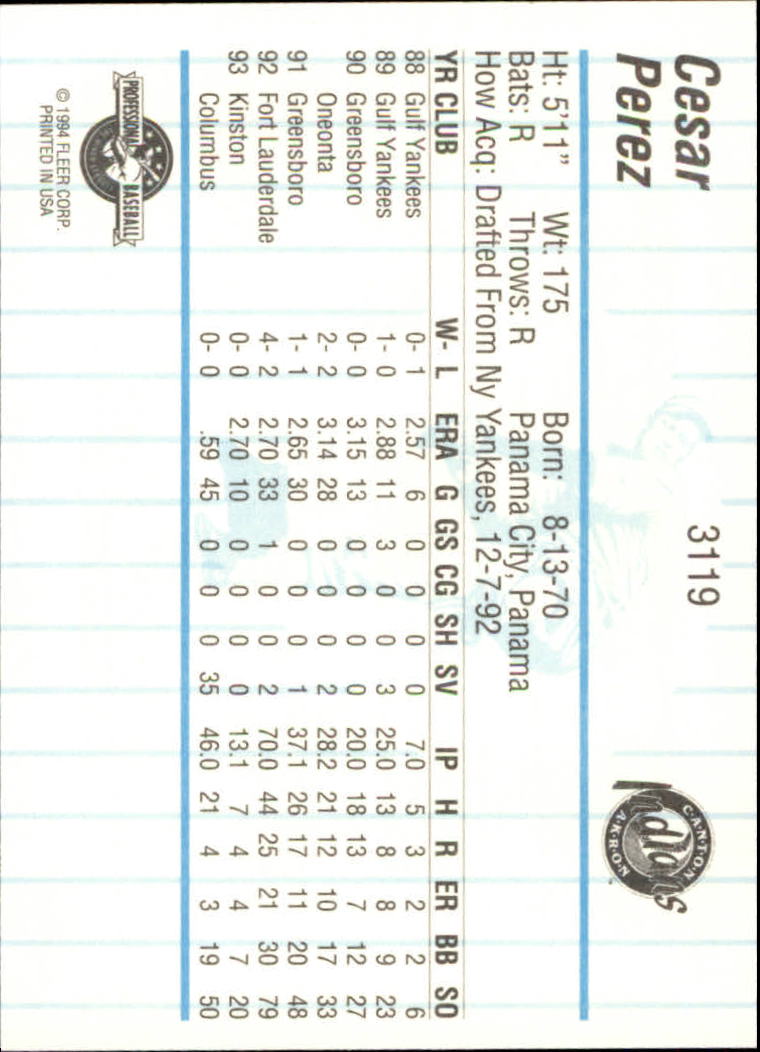 Cesar
Perez
3119
CANTON
Indians
AKRON
Ht: 5'11" Wt: 175 Born: 8-13-70
Bats: R Throws: R Panama City, Panama
How Acq: Drafted From Ny Yankees, 12-7-92
YR CLUB W- L ERA G GS CG SH SV IP H R ER BB SO
88 Gulf Yankees 0- 1 2.57 6 0 0 0 0 7.0 5 3 2 2 6
89 Gulf Yankees 1- 0 2.88 11 3 0 0 3 25.0 13 8 8 9 23
90 Greensboro 0- 0 3.15 13 0 0 0 0 20.0 18 13 7 12 27
Oneonta 2- 2 3.14 28 0 0 0 2 28.2 21 12 10 17 33
91 Greensboro 1- 1 2.65 30 0 0 0 1 37.1 26 17 11 20 48
92 Fort Lauderdale 4- 2 2.70 33 1 0 0 2 70.0 44 25 21 30 79
93 Kinston 0- 0 2.70 10 0 0 0 0 13.1 7 4 4 7 20
Columbus 0- 0 .59 45 0 0 0 35 46.0 21 4 3 19 50
PROFESSIONAL BASEBALL
© 1994 FLEER CORP.
PRINTED IN USA